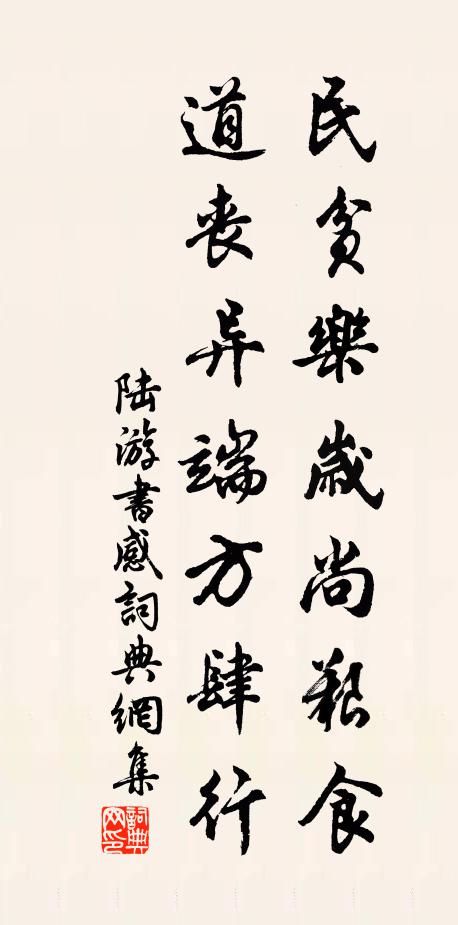 民貧樂歲尚艱食
道喪异端方肆行
陆游書感詞典網集
詞典網印